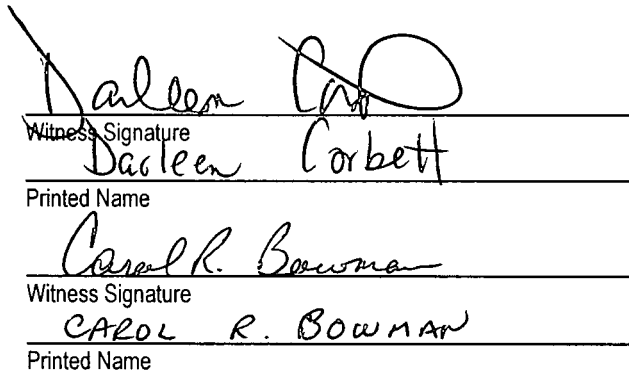 Darleen
Witness Signature
Darleen Corbett
Printed Name
Carol R. Bowman
Witness Signature
CAROL R. BOWMAN
Printed Name